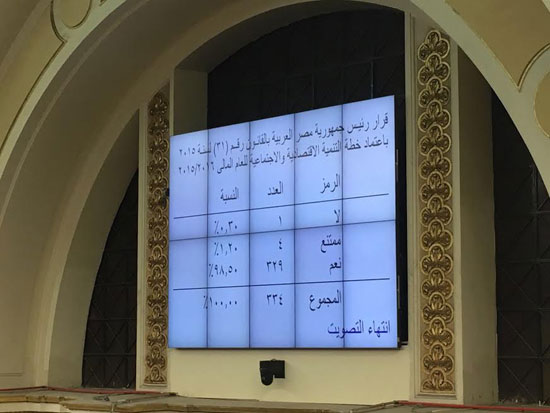 قرار رئيس جمهورية مصر العربية بالقانون رقم (٣١) لسنة ٢٠١٥
باعتماد خطة التنمية الاقتصادية والاجتماعية للعام المالى ٢٠١٥/٢٠١٦
الرمز العدد النسبة
لا ١ ٠,٣٠٪
ممتنع ٤ ١,٢٠٪
نعم ٣٢٩ ٩٨,٥٠٪
المجموع ٣٣٤ ١٠٠,٠٠٪
انتهاء التصويت